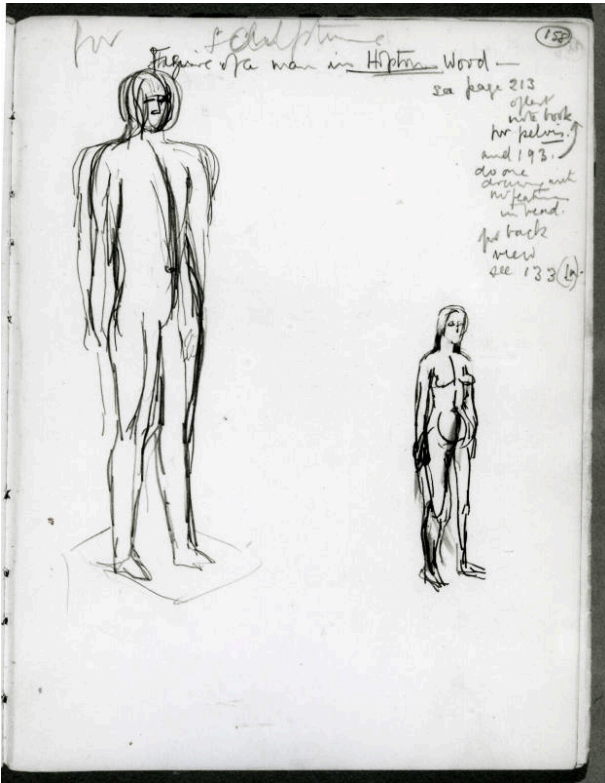 158
for sculpture
Figure of a man in Hopton Wood
see page 213
of last
note book
for pelvis.
and 193.
do one
drawing with
no features
in head.
for back
view
see 133